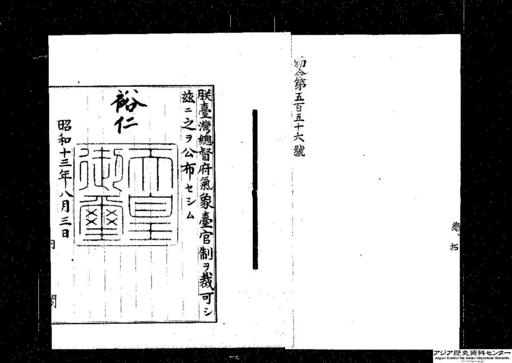 勅令第五百五十六號
朕臺灣總督府氣象臺官制ヲ裁可シ
茲ニ之ヲ公布セシム
裕仁
天皇御璽
昭和十三年八月三日
内閣
アジア歴史資料センター
Japan Center for Asian Historical Records